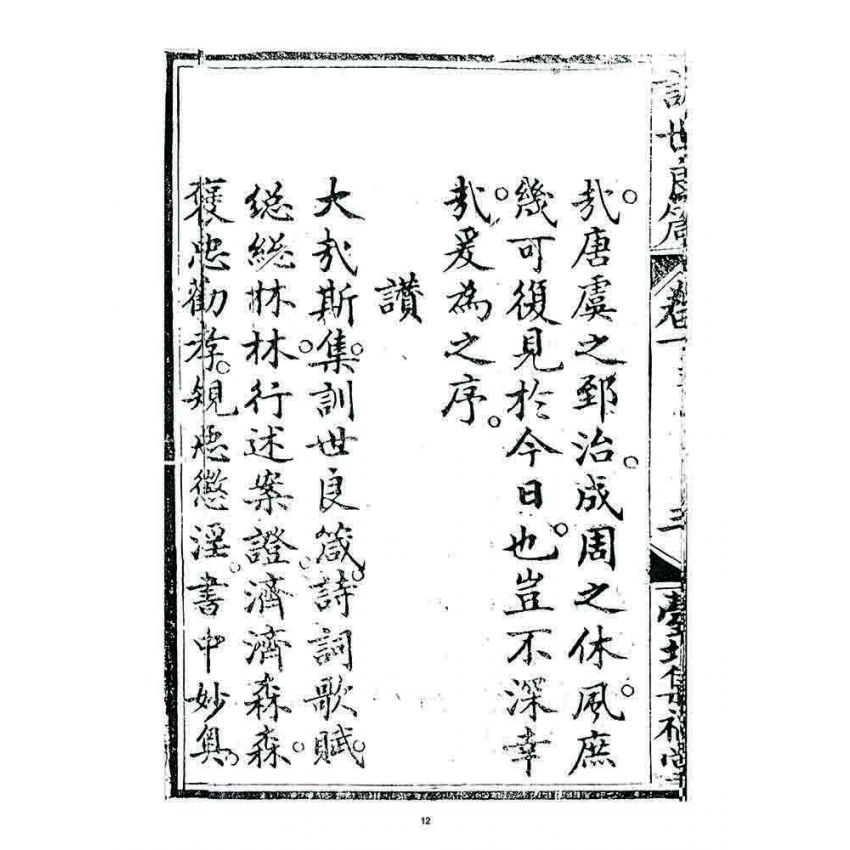 訓世良箴 卷一 三
哉。唐虞之郅治。成周之休風。庶
幾可復見於今日也。豈不深幸
哉。爰為之序。
讚
大哉斯集。訓世良箴。詩詞歌賦。
総総林林。行述案證。濟濟森森。
褒忠勸孝。規惡懲淫。書中妙奧。
12